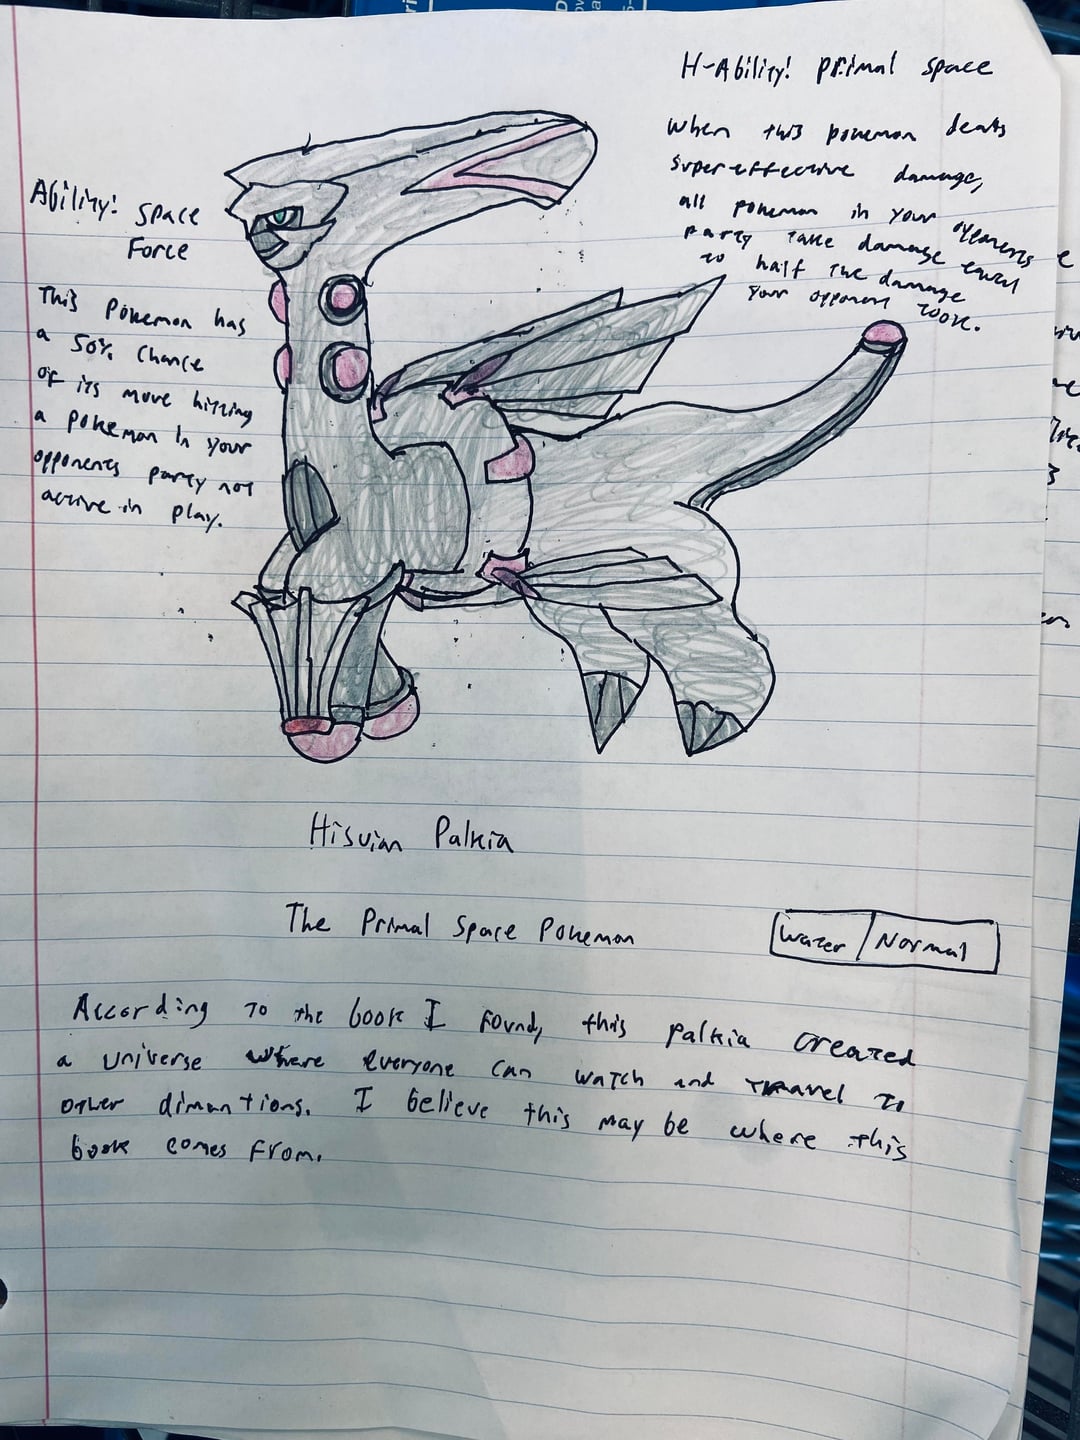 H-Ability! Primal Space
When this pokemon deals
supereffective damage,
all pokemon in your opponents
party take damage equal
to half the damage
your opponent took.
Ability! Space
Force
This Pokemon has
a 50% Chance
of its move hitting
a pokemon in your
opponents party not
active in play.
Hisuian Palkia
The Primal Space Pokemon
Water / Normal
According to the book I found, this palkia created
a universe where everyone can watch and travel to
other dimantions. I believe this may be where this
book comes from.